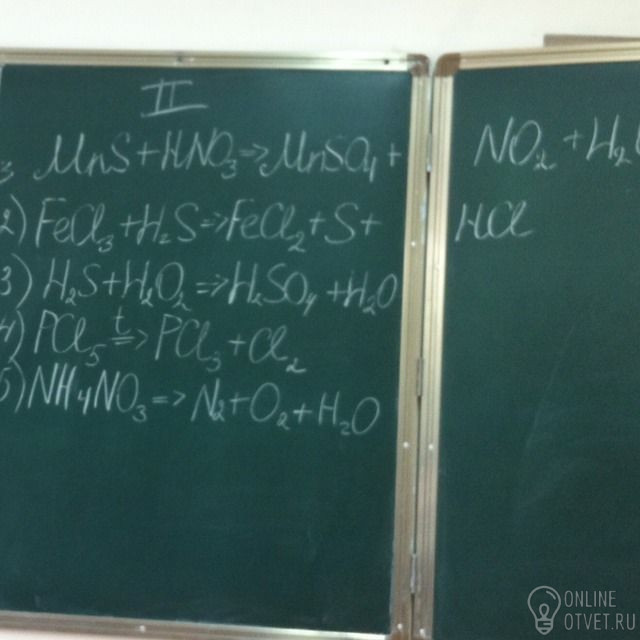 II
MnS+HNO₃⇒MnSO₄+ NO₂+H₂O
2) FeCl₃+H₂S⇒FeCl₂+S+ HCl
3) H₂S+H₂O₂⇒H₂SO₄+H₂O
4) PCl₅ t⇒ PCl₃+Cl₂
5) NH₄NO₃⇒N₂+O₂+H₂O
ONLINE
OTVET.RU